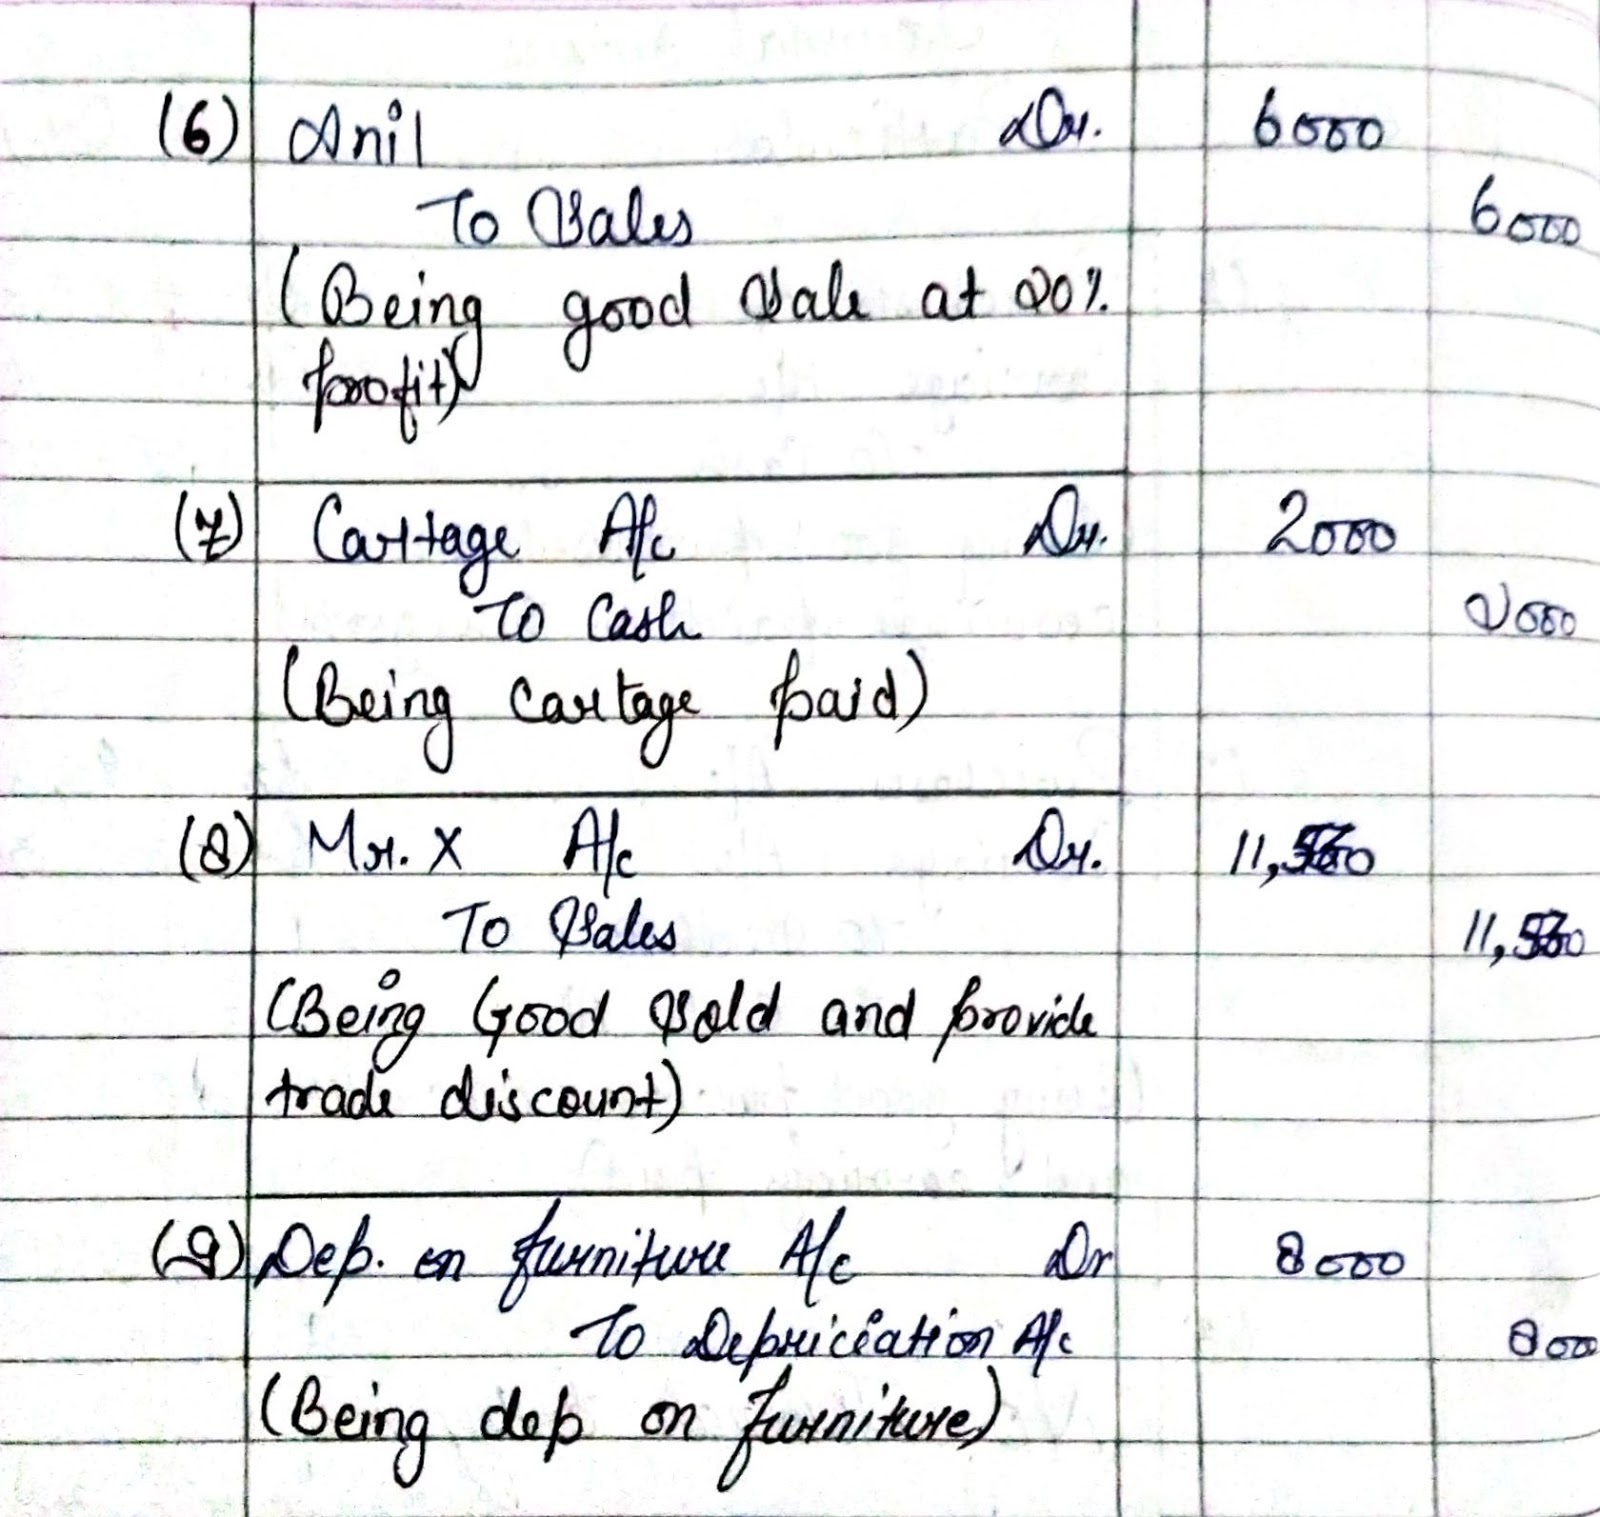 (6) Anil Dr. 6000
To Sales 6000
(Being good Sale at 20%
profit)
(7) Cartage A/c Dr. 2000
To Cash 2000
(Being cartage paid)
(8) Mr. X A/c Dr.
To Sales
(Being Good Sold and provide
trade discount)
(9) Dep. on furniture A/c Dr 8000
To Depriciation A/c 800
(Being dep on furniture)